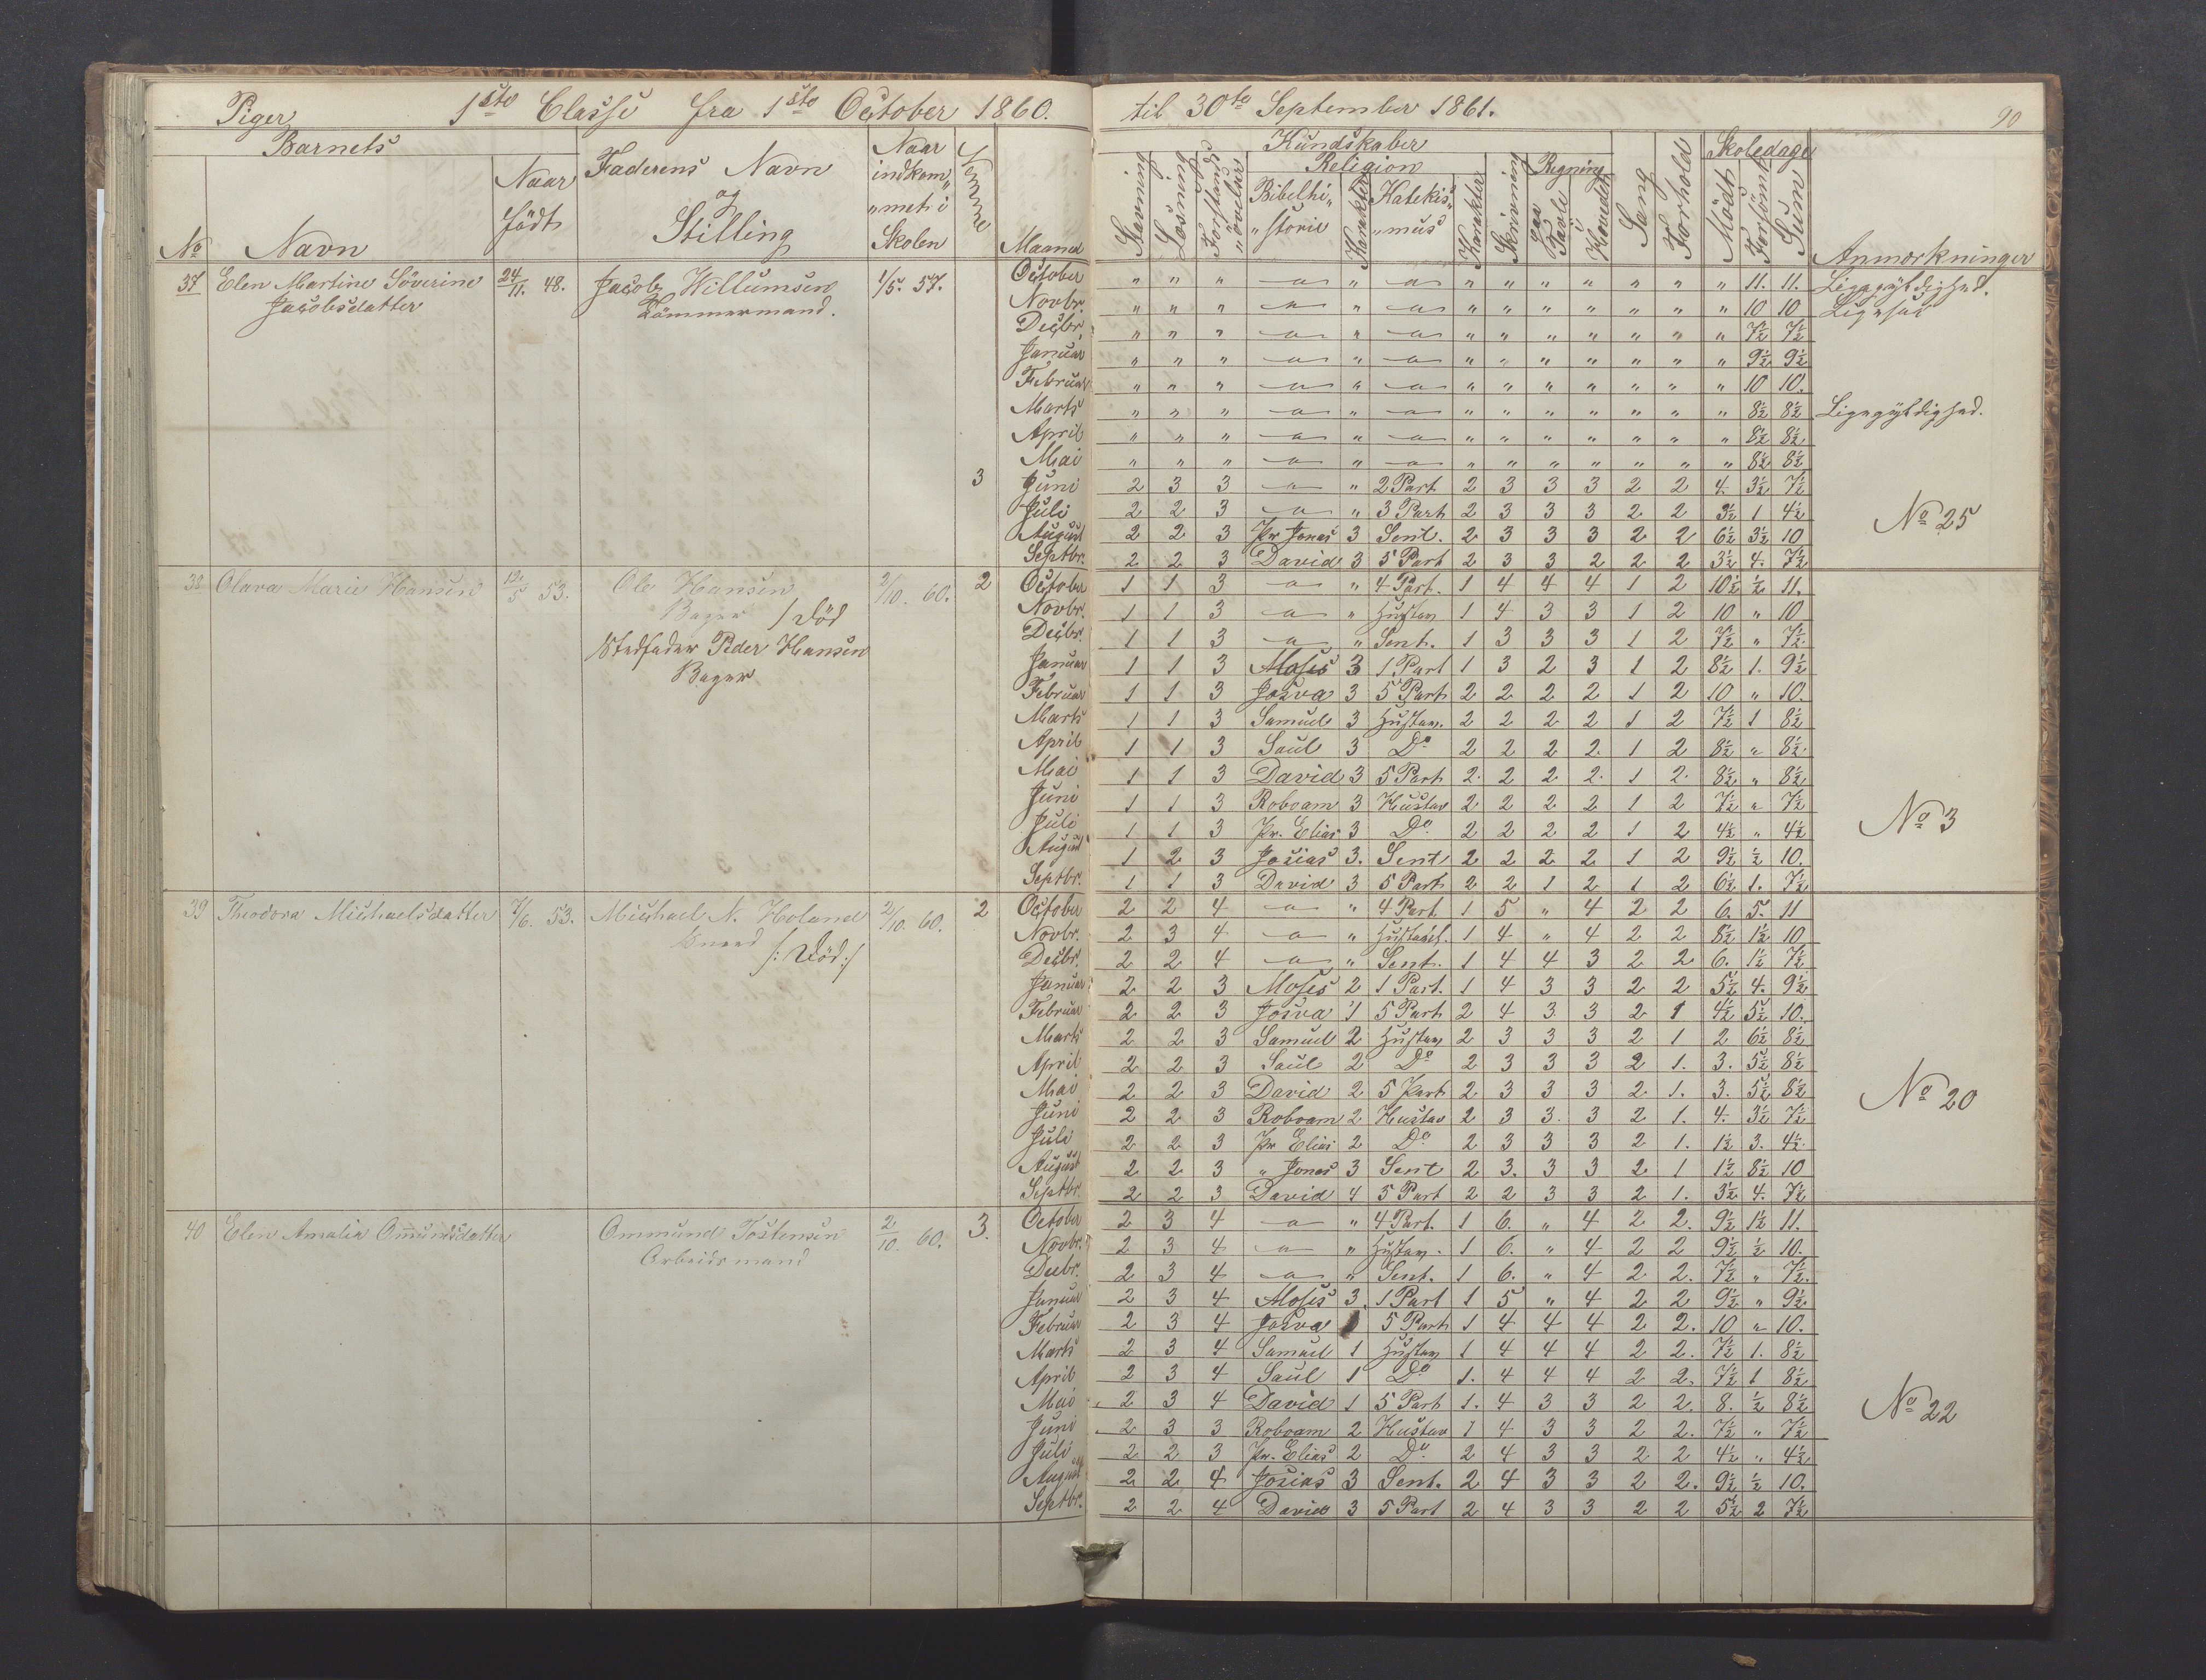 Piger 1ste Classe fra 1ste October 1860. til 30te September 1861. 90
Barnets Faderens Navn og Stilling Naar indkom„ „met i Skolen Nemme Maaned Kundskaber Skoledage Anmærkninger
No Navn Naar født Stavning Læsning Forstands „øvelser Religion Bibelhi„ „storie Karakter Katekis„ „mus Karakter Skrivning Regning paa Tavle i Hovedet Sang Forhold Mødt Forsømt Sum
37 Elen Martine Søverine 24/11. 48. Jacob Willumsen 1/5. 57. October " " " " " " " " " " " " " 11. 11. Ligegyldighed.
Jacobsdatter Tømmermand. Novbr. " " " " " " " " " " " " " 10 10 Ligesaa
Decbr. " " " " " " " " " " " " " 7½ 7½
Januar " " " " " " " " " " " " " 9½ 9½
Februar " " " " " " " " " " " " " 10 10.
Marts " " " " " " " " " " " " " 8½ 8½ Ligegyldighed.
April " " " " " " " " " " " " " 8½ 8½
Mai " " " " " " " " " " " " " 8½ 8½
3 Juni 2 3 3 " " 2 Part 2 3 3 3 2 2 4. 3½ 7½
Juli 2 2 3 " " 3 Part 2 3 3 3 2 2 3½ 1 4½ No 25
August 2 2 3 Pr Jonas 3 Sent. 2 3 3 3 2 2 6½ 3½ 10
Septbr. 2 2 3 David 3 5 Part 2 3 3 2 2 2 3½ 4. 7½
38 Olava Marie Hansen 12/5 53. Ole Hansen 2/10. 60. 2 October 1 1 3 " " 4 Part. 1 4 4 4 1 2 10½ ½ 11.
Bager / Død Novbr. 1 1 3 " " Hustav 1 4 3 3 1 2 10 " 10
Stedfader Peder Hansen Decbr. 1 1 3 " " Sent. 1 3 3 3 1 2 7½ " 7½
Bager Januar 1 1 3 Moses 3 1 Part 1 3 2 3 1 2 8½ 1. 9½
Februar 1 1 3 Josva 3 5 Part 2 2 2 2 1 2 10 " 10.
Marts 1 1 3 Samuel 3 Hustav. 2 2 2 2 1 2 7½ 1 8½
April 1 1 3 Saul 3 Do 2 2 2 2. 1 2 8½ " 8½
Mai 1 1 3 David 3 5 Part 2. 2 2 2. 1 2. 8½ " 8½
Juni 1 1 3 Roboam 3 Hustav 2 2 2 2 1 2 7½ " 7½
Juli 1 1 3 Pr. Elias 3 Do 2 2 2 2 1 2 4½ " 4½ No 3
August 1 2 3 Josias 3. Sent 2 2 2 2 1 2 9½ ½ 10.
Septbr. 1 1 3 David 3 5 Part 2 2 1 2 1 2 6½ 1. 7½
39 Theodora Michaelsdatter 7/6. 53. Michael N. Holand 2/10 60. 2 October 2 2 4 " " 4 Part. 1 5 " 4 2 2 6. 5. 11
/: Død :/ Novbr. 2 3 4 " " 1 4 " 4 2 2 8½ 1½ 10
Decbr. 2 2 4 " " Sent. 1 4 4 3 2 2 6. 1½ 7½
Januar 2 2 3 Moses 2 1 Part. 1 4 3 3 2 2 5½ 4. 9½
Februar 2 2 3 Josva 1 5 Part 2 4 3 3 2 1 4½ 5½ 10.
Marts 2 2 3 Samuel 2 Hustav 2 3 3 3 2 1 2 6½ 8½
April 2 2 3 Saul 2 Do 2 3 3 3 2 1. 3. 5½ 8½
Mai 2 2 3 David 2 5 Part 2 3 3 3 2. 1. 3. 5½ 8½
Juni 2 2 3 Roboam 2 Hustav 2 3 3. 3 2 1. 4. 3½ 7½ No 20
Juli 2 2 3 Pr Elias 2 Do 2 3 3 3 2 1. 1½ 3. 4½
August 2 2 3 " Jonas 3 Sent 2 3. 3 3 2 1 1½ 8½ 10
Septbr. 2 2 3 David 4 5 Part 2 2 3 3 2 1. 3½ 4. 7½
40 Elen Amalia Ommundsdatter Ommund Tostensen 2/10. 60. 3. October 2 3 4 " " 4 Part. 1 6. " 4 2 2. 9½ 1½ 11.
Arbeidsmand Novbr. 2 3 4 " " Hustav. 1 6. " 4 2 2 9½ ½ 10.
Decbr. 2 3 4 " " Sent. 1 6. " 4 2 2. 7½ " 7½
Januar 2 3 4 Moses 3. 1 Part 1 5 " 4 2 2 9½ " 9½
Februar 2 3 4 Josva 5 Part 1 4 4 4 2 2. 10 " 10.
Marts 2 3 4 Samuel 1 Hustav 1 4 4 4 2 2. 7½ 1. 8½
April 2 3 4 Saul 1 Do 1. 4 4 4 2 2. 7½ 1 8½
Mai 2 3 4 David 1 5 Part 1. 4 3 3 2 2. 8. ½ 8½
Juni 2 3 3 Roboam 2 Hustav 1 4 3 3 2 2. 7½ " 7½ No 22
Juli 2 2 3 Pr. Elias 2 Do 2 4 3 3 2 2 4½ " 4½
August 2 2 4 Josias 3 Sent. 2 4 3 3 2 2. 9½ ½ 10.
Septbr. 2 2 4 David 3 5 Part 2 4 3 3 2 2 5½ 2 7½